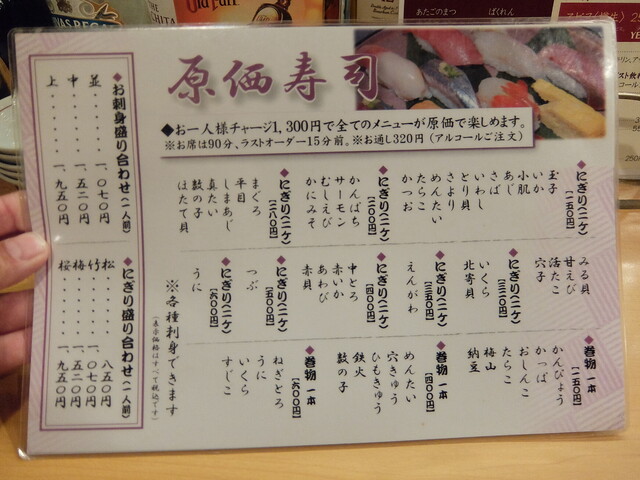 原価寿司
◆お一人様チャージ1,300円で全てのメニューが原価で楽しめます。
※お席は90分、ラストオーダー15分前。※お通し320円（アルコールご注文）
◆にぎり（二ケ）［一五〇円］
玉子
いか
小肌
あじ
さば
いわし
とり貝
さより
めんたい
たらこ
かつお
◆にぎり（二ケ）［二〇〇円］
かんぱち
サーモン
むしえび
かにみそ
◆にぎり（二ケ）［二八〇円］
まぐろ
しまあじ
平目
真たい
数の子
ほたて貝
みる貝
甘えび
活たこ
穴子
◆にぎり（二ケ）［三二〇円］
いくら
北寄貝
◆にぎり（二ケ）［三五〇円］
えんがわ
◆にぎり（二ケ）［四〇〇円］
中とろ
赤いか
あわび
赤貝
◆にぎり（二ケ）［五〇〇円］
つぶ
◆にぎり（二ケ）［六〇〇円］
うに
◆巻物 一本［二五〇円］
かんぴょう
かっぱ
おしんこ
たらこ
梅山
納豆
◆巻物 一本［四〇〇円］
めんたい
穴きゅう
ひもきゅう
鉄火
数の子
◆巻物 一本［六〇〇円］
ねぎとろ
うに
いくら
すじこ
※各種刺身できます
（表示価格はすべて税込です）
◆お刺身盛り合わせ（一人前）
並・・・・・一、〇七〇円
中・・・・・一、五二〇円
上・・・・・一、九五〇円
◆にぎり盛り合わせ（一人前）
松・・・・・八五〇円
竹・・・・・一、〇七〇円
梅・・・・・一、五二〇円
桜・・・・・一、九五〇円
あたごのまつ
ばくれん